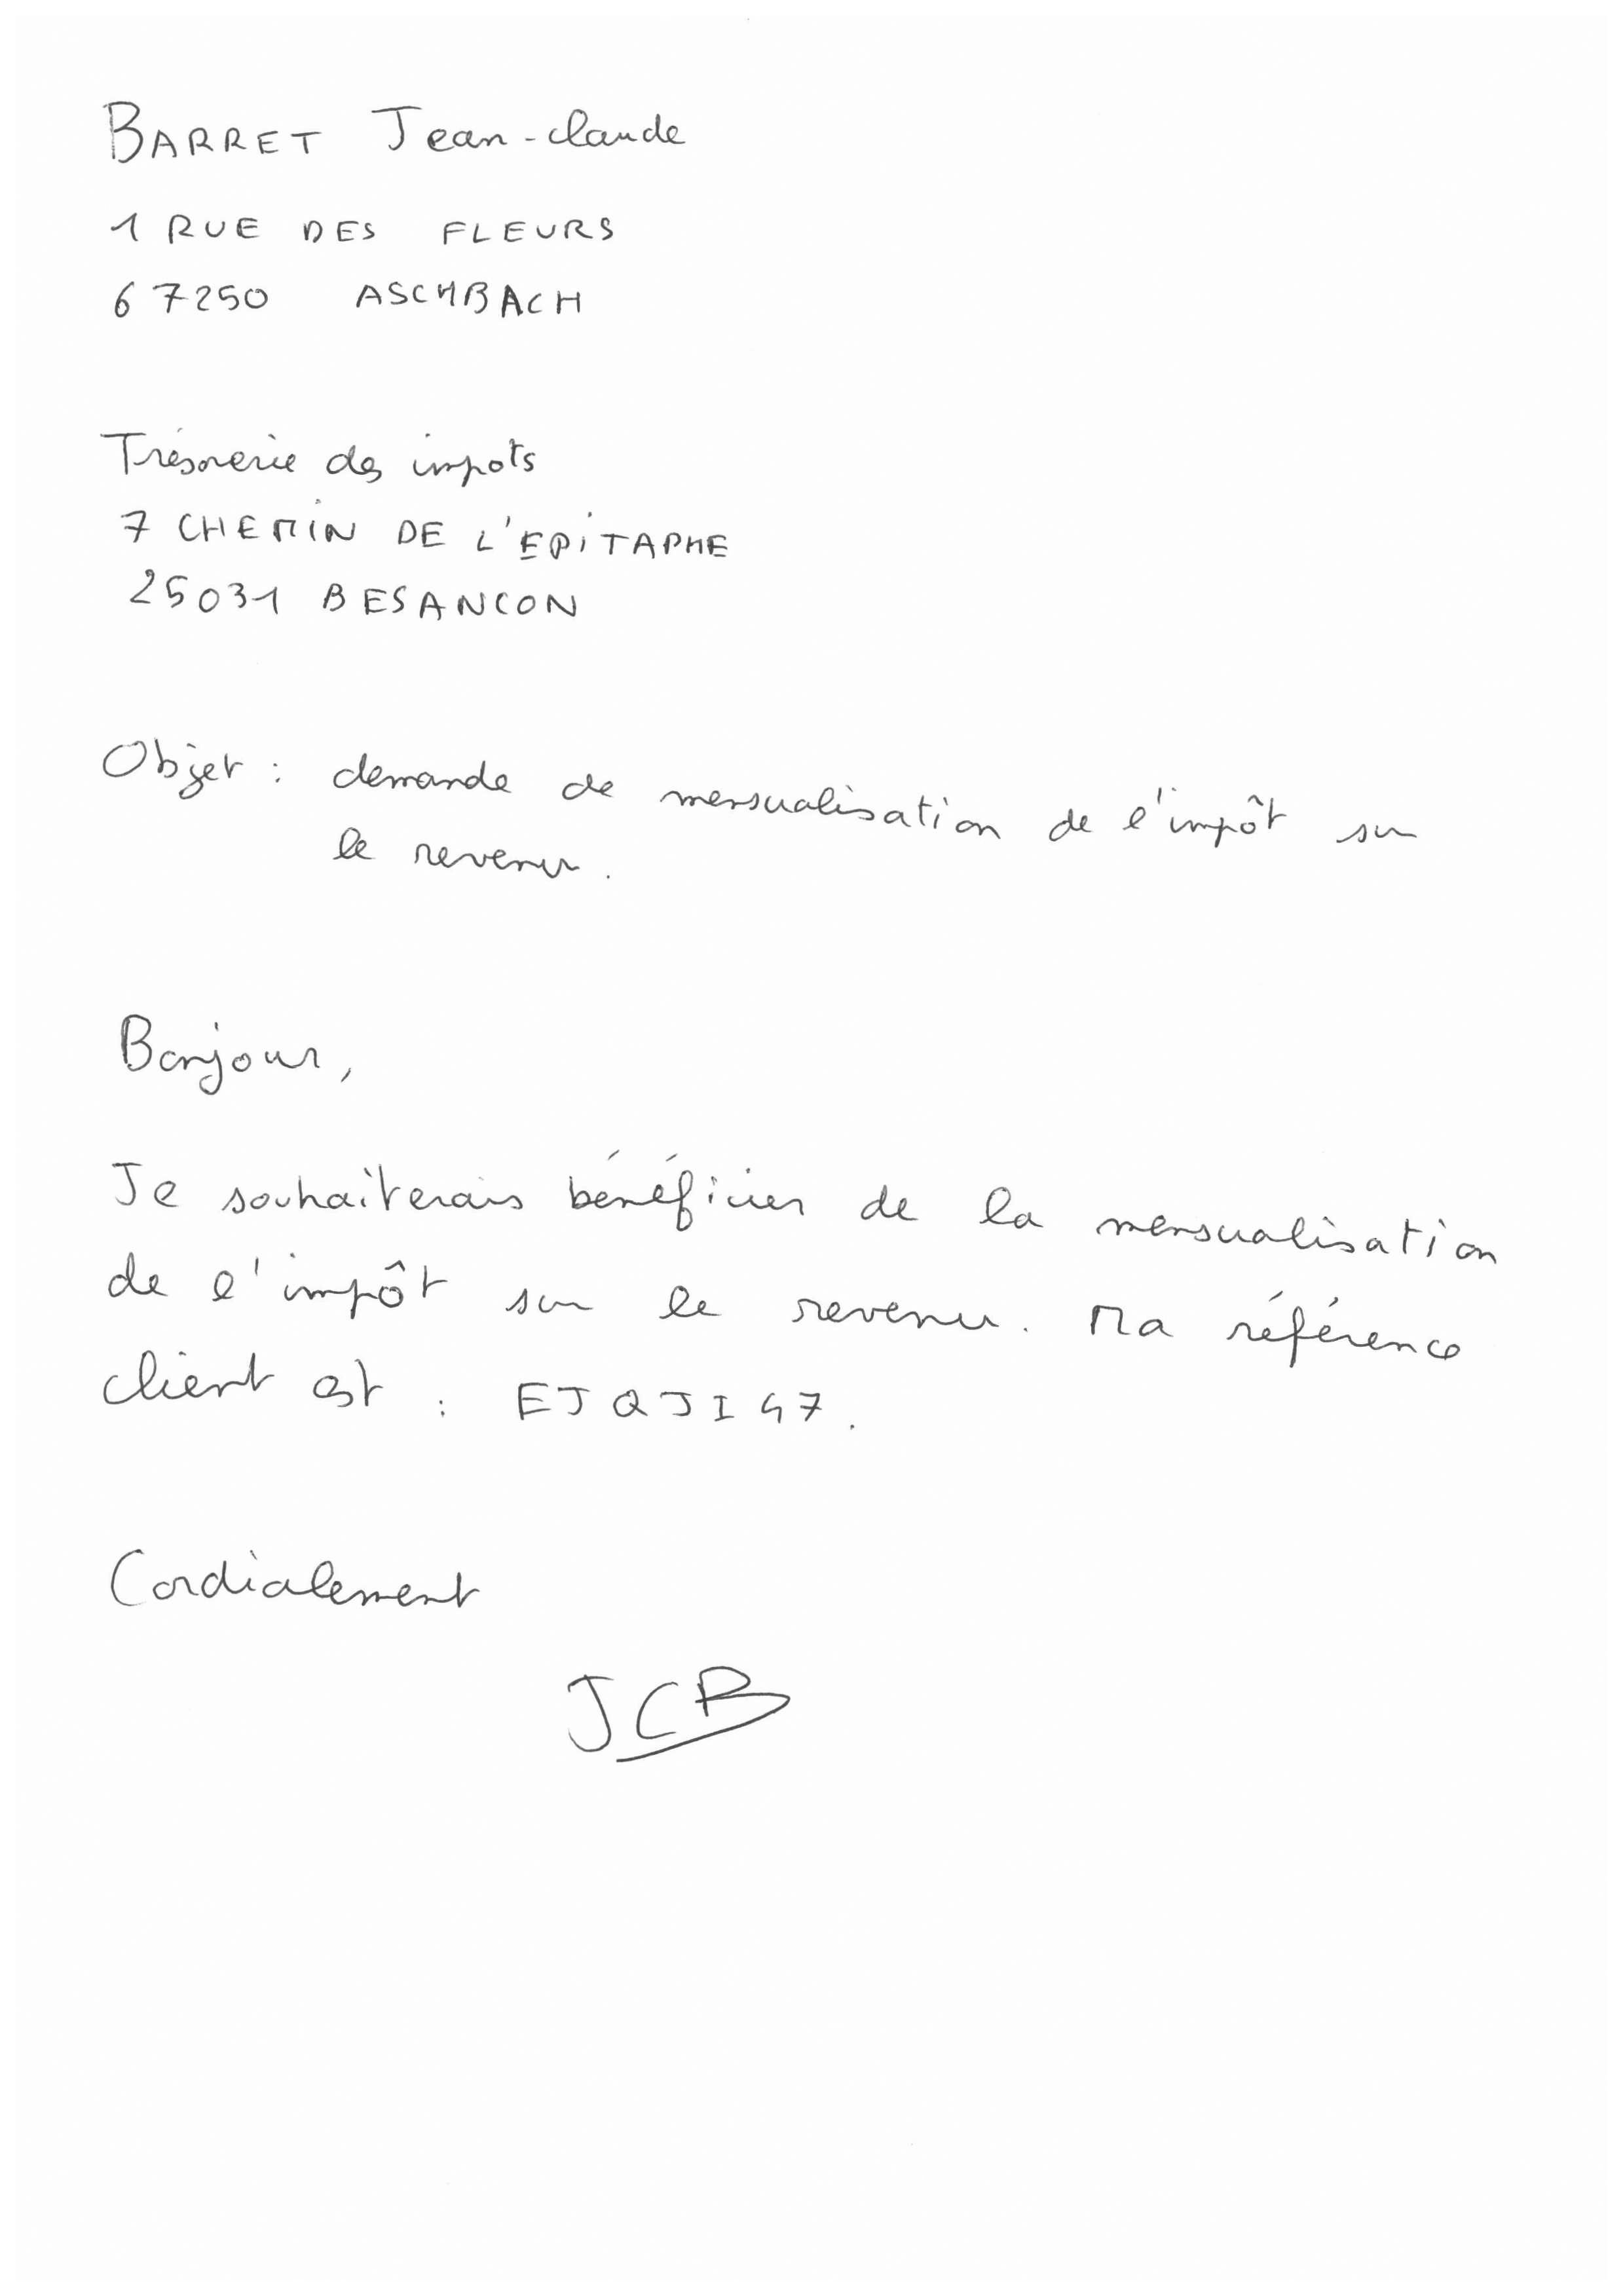 BARRET Jean-claude
1 RUE DES FLEURS
67250 ASCHBACH
Trésorerie des impots
7 CHEMIN DE L'EPITAPHE
25031 BESANCON
Objet : demande de mensualisation de l'impôt sur
le revenu.
Bonjour,
Je souhaiterais bénéficier de la mensualisation
de l'impôt sur le revenu. Ma référence
client est : EJQJI47.
Cordialement
JCB